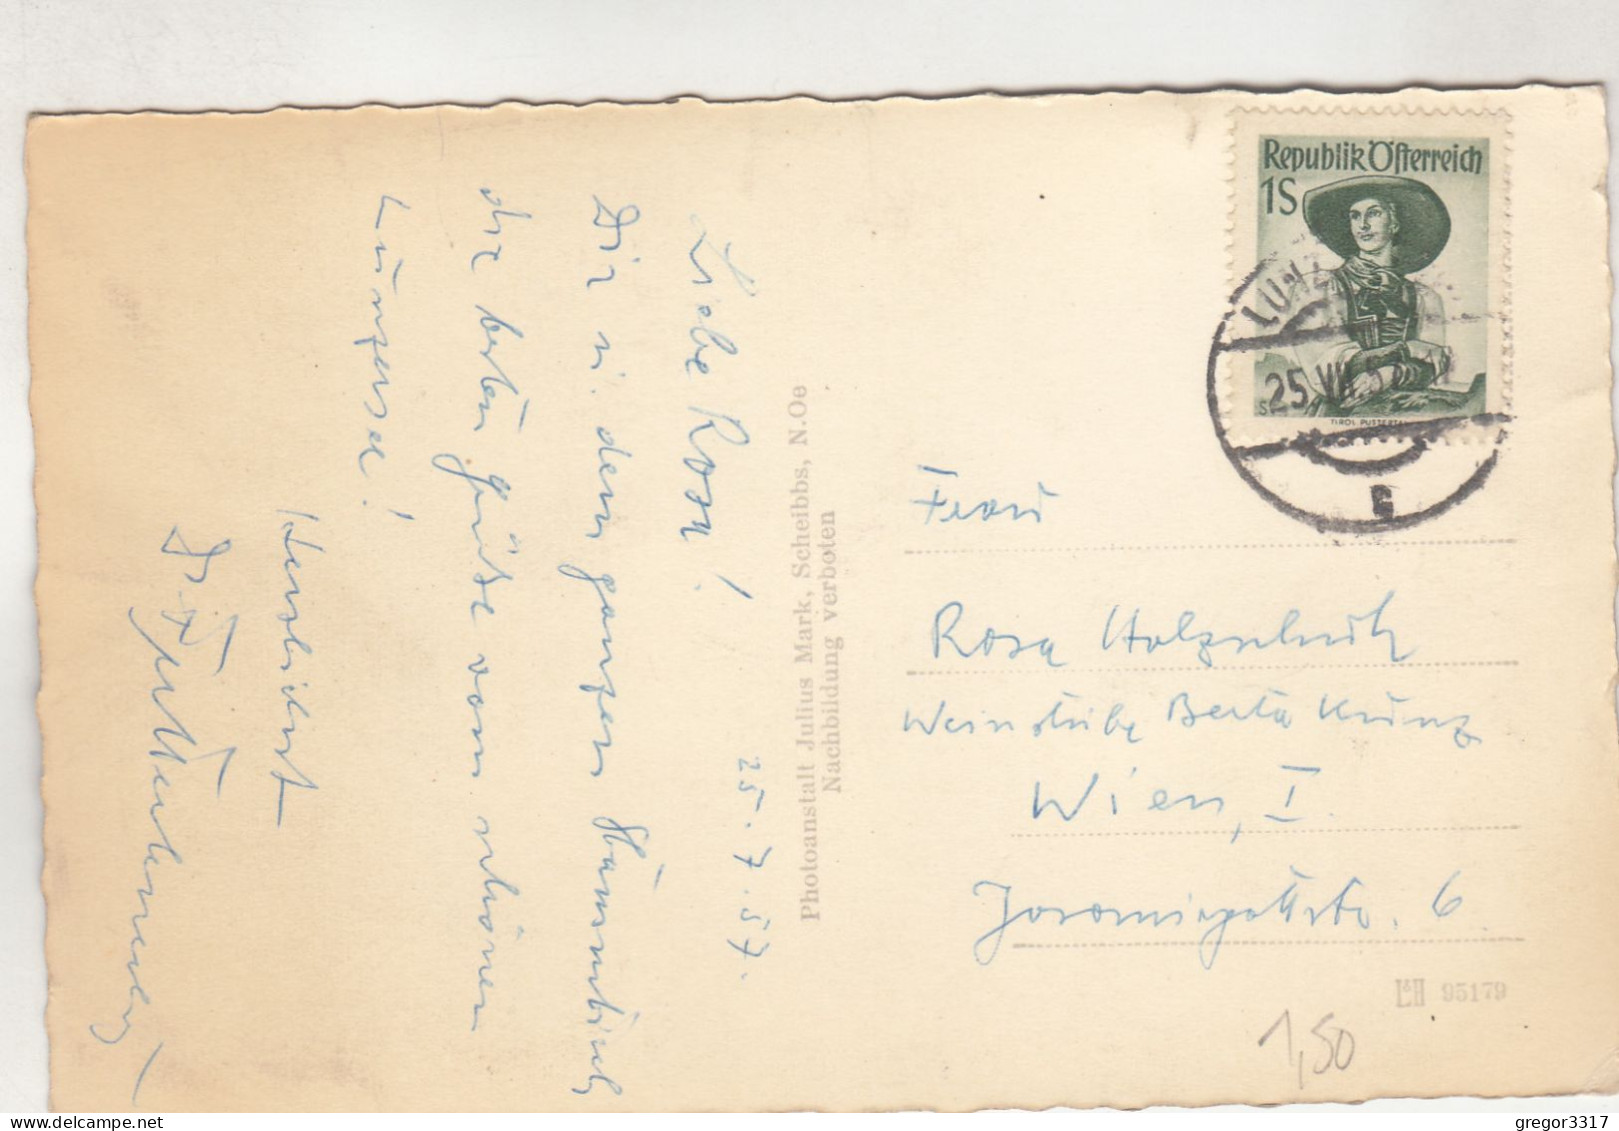 Liebe Rosa!
Dir u. dem ganzen Stammtisch
die besten Grüße vom schönen
Lunzersee!
Herzlichst
25.7.57.
Photoanstalt Julius Mark, Scheibbs, N.Oe
Nachbildung verboten
Republik Österreich
1S
LUNZ
25.VII.57
TIROL PUSTERTAL
Frau
Rosa Holzschuh
Weinstube Berta Kunz
Wien, I.
6
L&H 95179
1,50
gregor3317